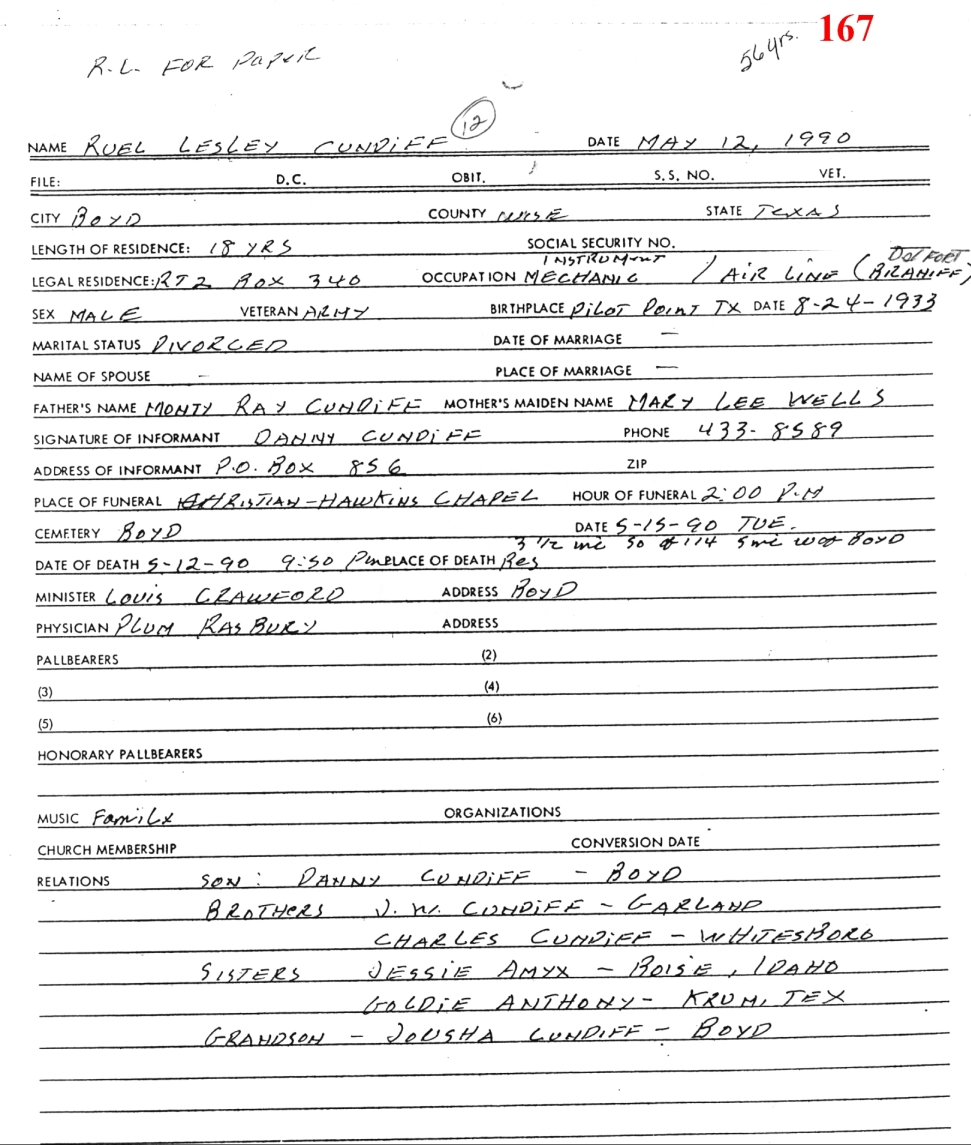 167
56 yrs.
R.L. FOR PAPER
12
NAME RUEL LESLEY CUNDIFF DATE MAY 12, 1990
FILE: D.C. OBIT. S.S. NO. VET.
CITY BOYD COUNTY WISE STATE TEXAS
LENGTH OF RESIDENCE: 18 YRS SOCIAL SECURITY NO.
INSTRUMENT
LEGAL RESIDENCE: RT 2 BOX 340 OCCUPATION MECHANIC / AIR LINE (BRANIFF)
SEX MALE VETERAN ARMY BIRTHPLACE PILOT POINT TX DATE 8-24-1933
MARITAL STATUS DIVORCED DATE OF MARRIAGE —
NAME OF SPOUSE - PLACE OF MARRIAGE —
FATHER'S NAME MONTY RAY CUNDIFF MOTHER'S MAIDEN NAME MARY LEE WELLS
SIGNATURE OF INFORMANT DANNY CUNDIFF PHONE 433-8589
ADDRESS OF INFORMANT P.O. BOX 856 ZIP
PLACE OF FUNERAL CHRISTIAN-HAWKINS CHAPEL HOUR OF FUNERAL 2:00 P.M
CEMETERY BOYD DATE 5-15-90 TUE.
3 1/2 mi So of 114 5 mi w of BOYD
DATE OF DEATH 5-12-90 9:50 Pm PLACE OF DEATH Res
MINISTER LOUIS CRAWFORD ADDRESS BOYD
PHYSICIAN PLUM RASBURY ADDRESS
PALLBEARERS (2)
(3) (4)
(5) (6)
HONORARY PALLBEARERS
MUSIC Family ORGANIZATIONS
CHURCH MEMBERSHIP CONVERSION DATE
RELATIONS SON: DANNY CUNDIFF - BOYD
BROTHERS J.W. CUNDIFF - GARLAND
CHARLES CUNDIFF - WHITESBORO
SISTERS JESSIE AMYX - BOISE, IDAHO
GOLDIE ANTHONY - KRUM, TEX
GRANDSON - JOUSHA CUNDIFF - BOYD